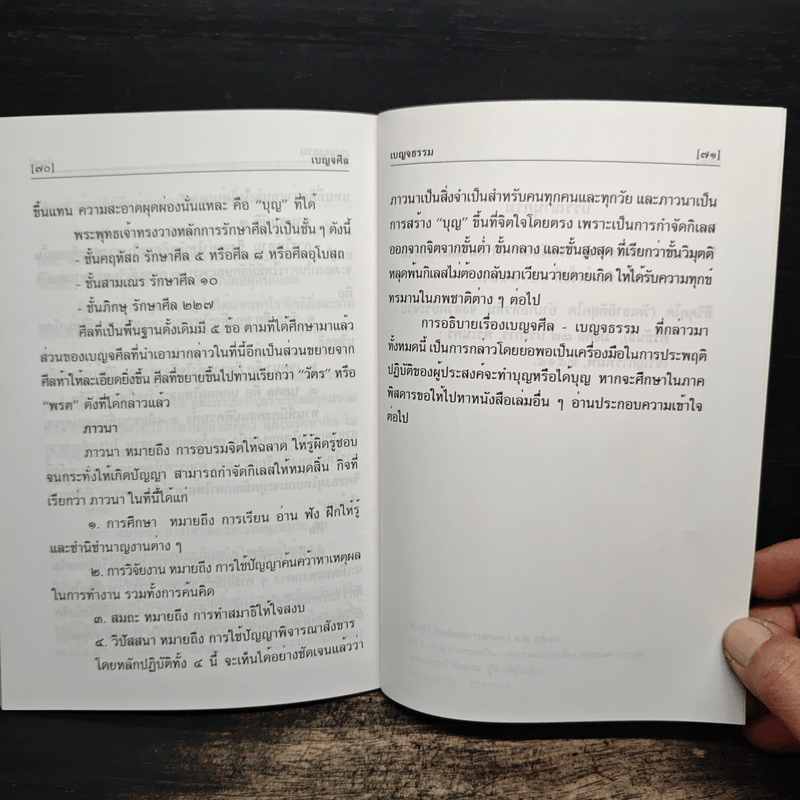 [๗๐] เบญจศีล
ขึ้นแทน ความสะอาดผุดผ่องนั่นแหละ คือ “บุญ” ที่ได้
พระพุทธเจ้าทรงวางหลักการรักษาศีลไว้เป็นชั้น ๆ ดังนี้
- ชั้นคฤหัสถ์ รักษาศีล ๕ หรือศีล ๘ หรือศีลอุโบสถ
- ชั้นสามเณร รักษาศีล ๑๐
- ชั้นภิกษุ รักษาศีล ๒๒๗
ศีลที่เป็นพื้นฐานดั้งเดิมมี ๕ ข้อ ตามที่ได้ศึกษามาแล้ว
ส่วนของเบญจศีลที่นำเอามากล่าวในที่นี้อีกเป็นส่วนขยายจาก
ศีลห้าให้ละเอียดยิ่งขึ้น ศีลที่ขยายขึ้นไปท่านเรียกว่า “วัตร” หรือ
“พรต” ดังที่ได้กล่าวแล้ว
ภาวนา
ภาวนา หมายถึง การอบรมจิตให้ฉลาด ให้รู้ผิดรู้ชอบ
จนกระทั่งให้เกิดปัญญา สามารถกำจัดกิเลสให้หมดสิ้น กิจที่
เรียกว่า ภาวนา ในที่นี้ได้แก่
๑. การศึกษา หมายถึง การเรียน อ่าน ฟัง ฝึกให้รู้
และชำนิชำนาญงานต่าง ๆ
๒. การวิจัยงาน หมายถึง การใช้ปัญญาค้นคว้าหาเหตุผล
ในการทำงาน รวมทั้งการค้นคิด
๓. สมถะ หมายถึง การทำสมาธิให้ใจสงบ
๔. วิปัสสนา หมายถึง การใช้ปัญญาพิจารณาสังขาร
โดยหลักปฏิบัติทั้ง ๔ นี้ จะเห็นได้อย่างชัดเจนแล้วว่า
เบญจธรรม [๗๑]
ภาวนาเป็นสิ่งจำเป็นสำหรับคนทุกคนและทุกวัย และภาวนาเป็น
การสร้าง “บุญ” ขึ้นที่จิตใจโดยตรง เพราะเป็นการกำจัดกิเลส
ออกจากจิตจากขั้นต่ำ ขั้นกลาง และขั้นสูงสุด ที่เรียกว่าขั้นวิมุตติ
หลุดพ้นกิเลสไม่ต้องกลับมาเวียนว่ายตายเกิด ให้ได้รับความทุกข์
ทรมานในภพชาติต่าง ๆ ต่อไป
การอธิบายเรื่องเบญจศีล - เบญจธรรม ที่กล่าวมา
ทั้งหมดนี้ เป็นการกล่าวโดยย่อพอเป็นเครื่องมือในการประพฤติ
ปฏิบัติของผู้ประสงค์จะทำบุญหรือได้บุญ หากจะศึกษาในภาค
พิสดารขอให้ไปหาหนังสือเล่มอื่น ๆ อ่านประกอบความเข้าใจ
ต่อไป